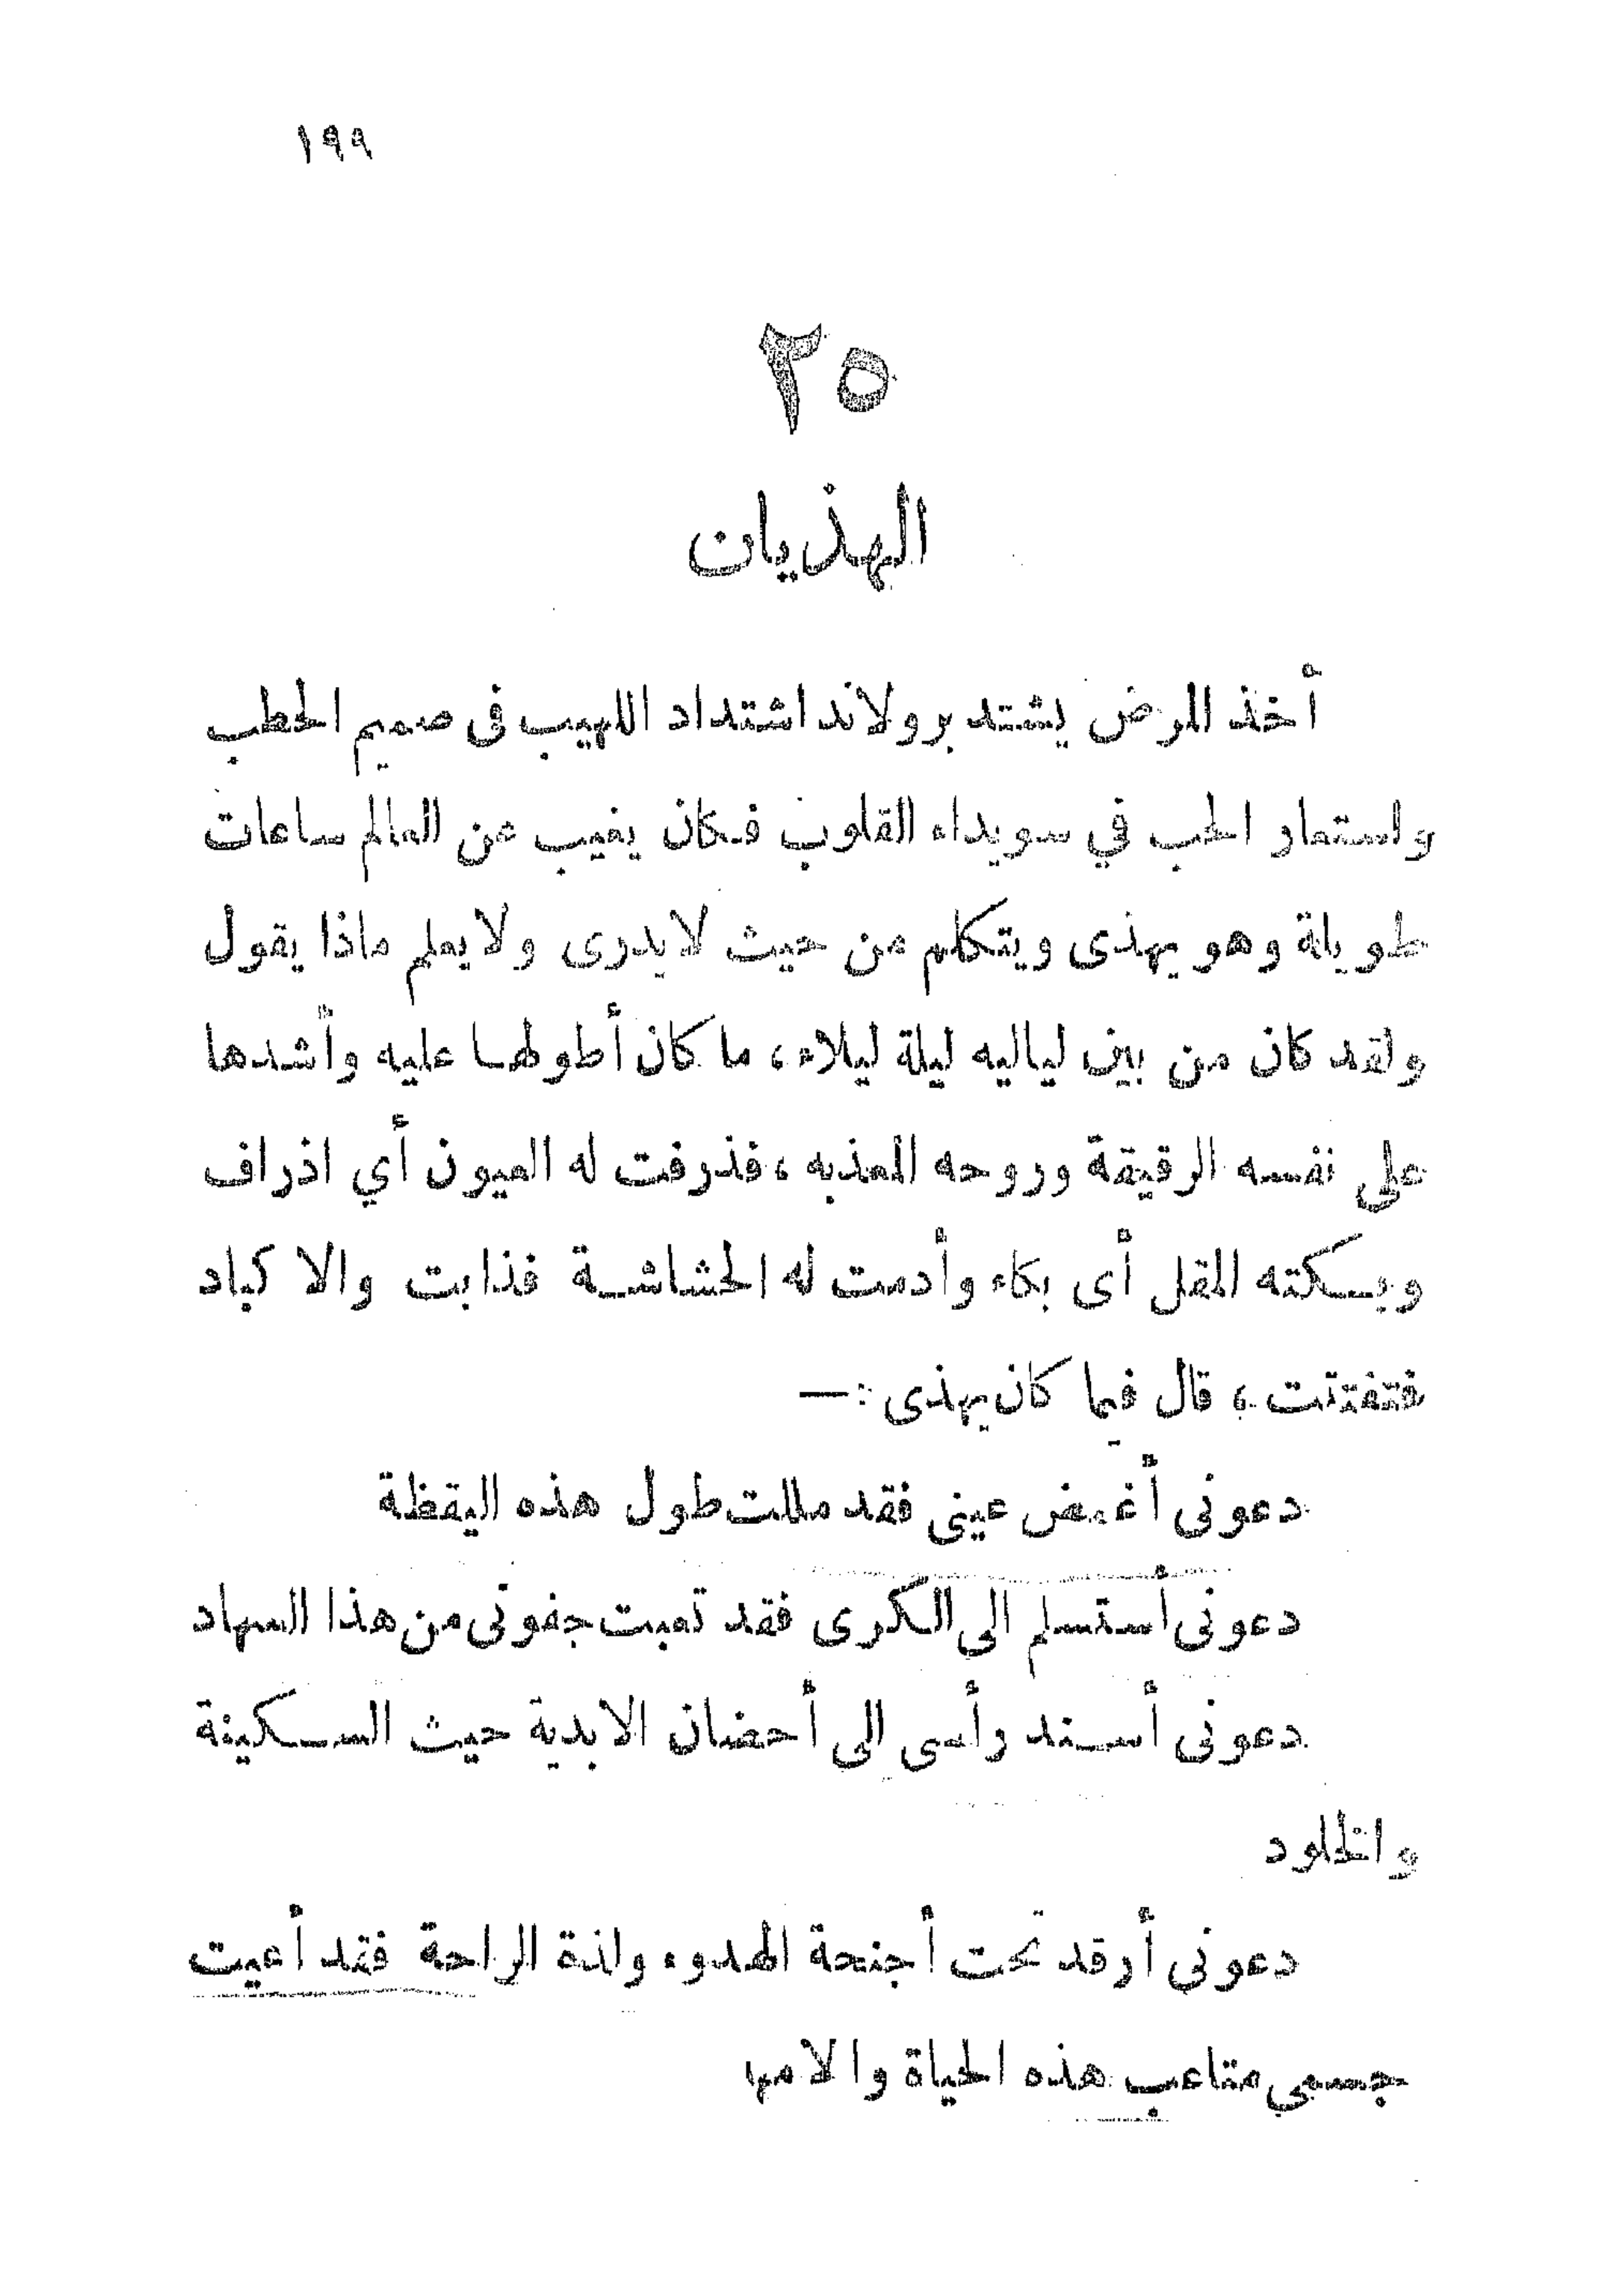 ١٩٩
٢٥
الهذيان
أخذ المرض يشتد برولاند اشتداد اللهيب فى صميم الحطب
واستعار الحب في سويداء القلوب فكان يغيب عن العالم ساعات
طويلة وهو يهذى ويتكلم من حيث لا يدرى ولا يعلم ماذا يقول
ولقد كان من بين لياليه ليلة ليلاء، ما كان أطولها عليه وأشدها
على نفسه الرقيقة وروحه المعذبه، فذرفت له العيون أي اذراف
وبكته المقل أى بكاء وأدمت له الحشاشة فذابت والا كباد
فتفتتت، قال فيما كان يهذى :—
دعونى أغمض عينى فقد مللت طول هذه اليقظة
دعونى أستسلم الى الكرى فقد تعبت جفونى من هذا السهاد
دعونى أسند رأسى الى أحضان الابدية حيث السكينة
والخلود
دعونى أرقد تحت أجنحة الهدوء ولذة الراحة فقد أعيت
جسمي متاعب هذه الحياة والامها